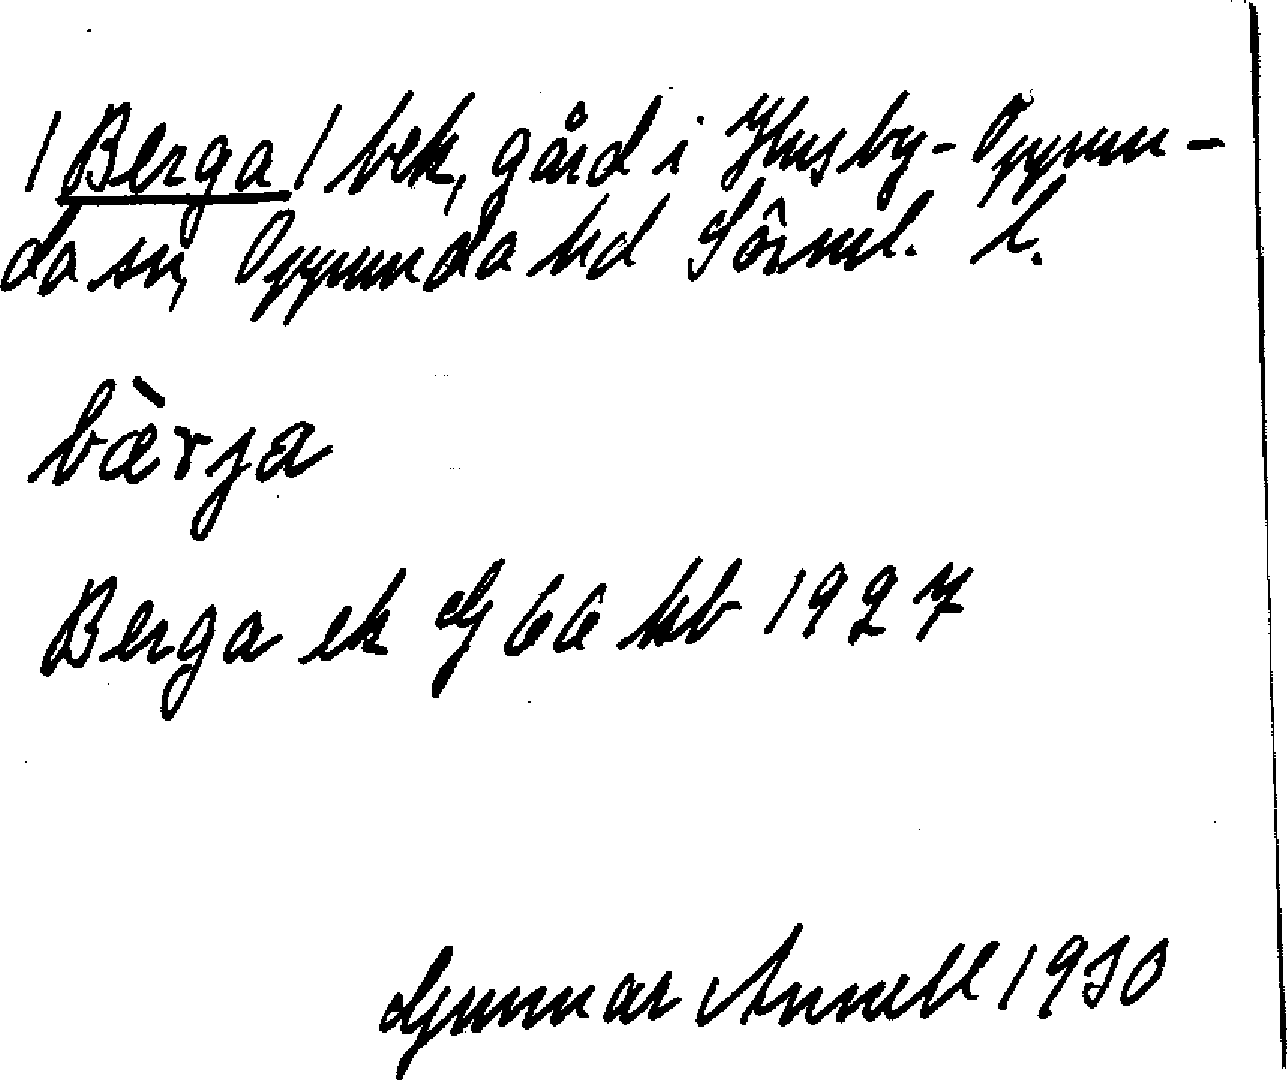 / Berga / bek, gård i Husby-Oppun-
da sn, Oppunda hd Sörml. l.
bæ̀rja
Berga ek G 66 hkb 1927
Gunnar Annell 1930